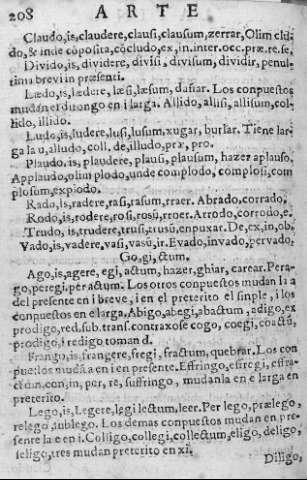 208 ARTE
Claudo, is, claudere, clausi, clausum, zerrar, Olim clu
do, & inde cõposita, cõcludo, ex, in. inter. occ. præ. re. se,
Divido, is, dividere, divisi, divisum, dividir, penul
tima brevi in præsenti.
Lædo, is, lædere, læsi, læsum, dañar. Los conpuestos
mudan el diuongo en i larga. Allido, allisi, allisum, col-
lido, illido.
Ludo, is, ludere, lusi, lusum, xugar, burlar. Tiene lar
ga la u, alludo, coll. de, illudo, præ, pro.
Plaudo, is, plaudere, plausi, plausum, hazer aplauso,
Applaudo, olim plodo, unde complodo, complosi, com
plosum, explodo.
Rado, is, radere, rasi, rasum, rraer. Abrado, corrado,
Rodo, is, rodere, rosi, rosũ, rroer. Arrodo, corrodo, e.
Trudo, is, trudere, trusi, trusũ, enpuxar. De, ex, in, ob,
Vado, is, vadere, vasi, vasũ, ir. Evado, invado, pervado,
Go, gi, ctum.
Ago, is, agere, egi, actum, hazer, ghiar, carear. Pera-
go, peregi, peractum. Los otros conpuestos mudan la a
del presente en i breve, i en el preterito el sinple, i los
conpuestos en e larga, Abigo, abegi, abactum, adigo, ex
prodigo, red. sub. trans. contraxose cogo, coegi, coactũ,
prodigo, i redigo toman d.
Frango, is, frangere, fregi, fractum, quebrar. Los con
puestos mudã a en i en presente. Effringo, effregi, effra-
ctum, con, in, per, re, suffringo, mudan la en e larga en
preterito.
Lego, is, Legere, legi lectum, leer. Per lego, prælego,
relego, sublego. Los demas conpuestos mudan en pre-
sente la e en i. Colligo, collegi, collectum, eligo, deligo,
seligo, tres mudan preterito en xi.
Diligo,